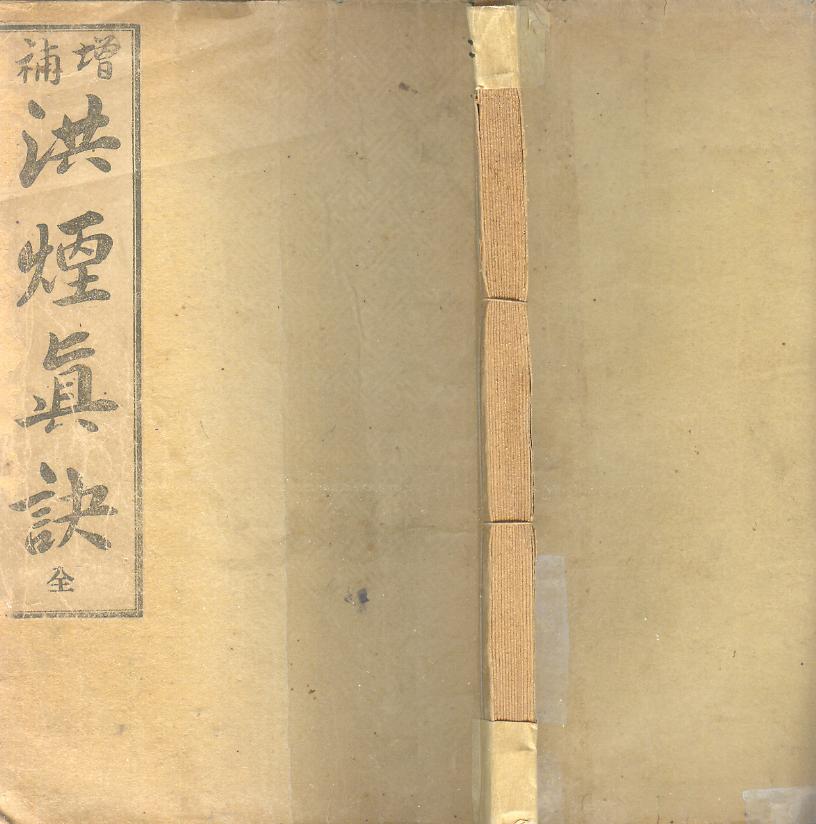 增補
洪煙眞訣
全